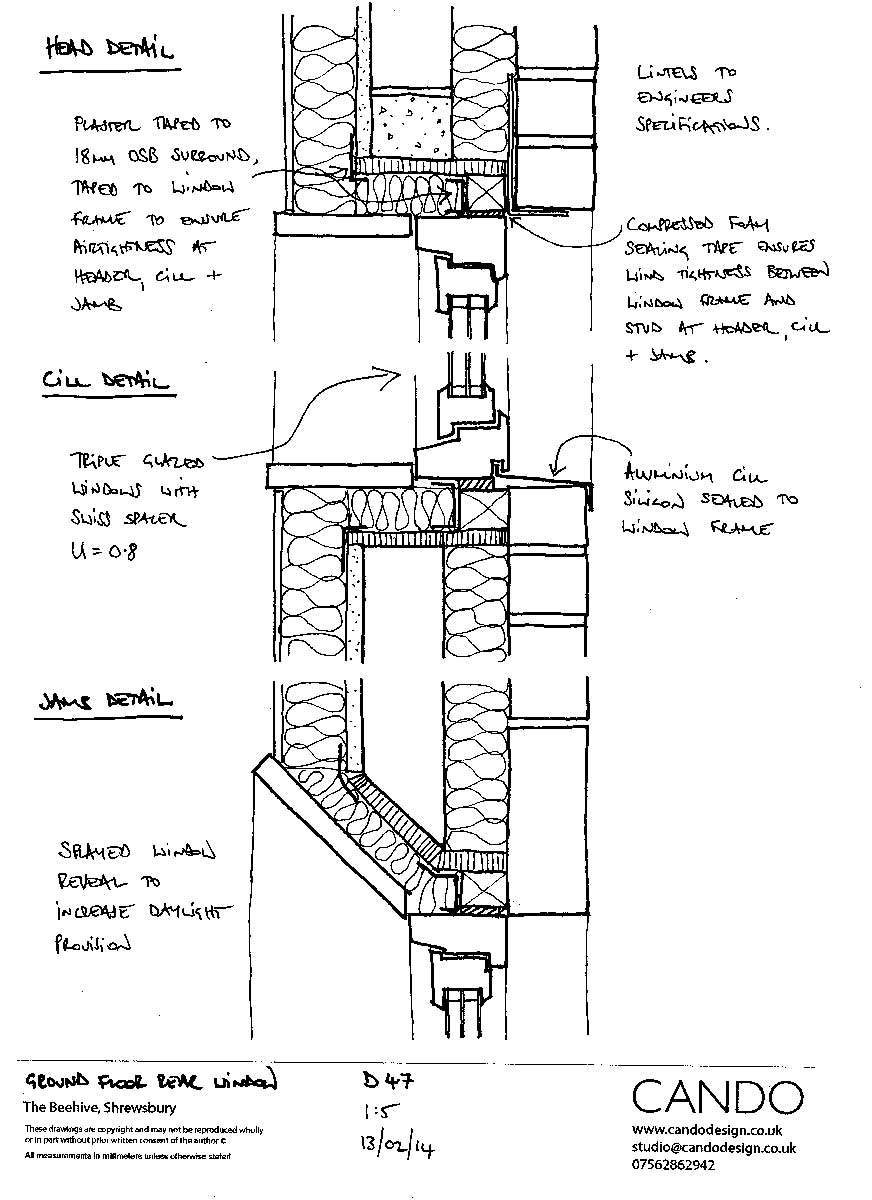 HEAD DETAIL
PLASTER TAPED TO
18MM OSB SURROUND,
TAPED TO WINDOW
FRAME TO ENSURE
AIRTIGHTNESS AT
HEADER, CILL +
JAMB
LINTELS TO
ENGINEERS
SPECIFICATIONS.
COMPRESSED FOAM
SEALING TAPE ENSURES
WIND TIGHTNESS BETWEEN
WINDOW FRAME AND
STUD AT HEADER, CILL
+ JAMB.
CILL DETAIL
TRIPLE GLAZED
WINDOWS WITH
SWISS SPACER
U = 0.8
ALUMINIUM CILL
SILICON SEALED TO
WINDOW FRAME
JAMB DETAIL
SPLAYED WINDOW
REVEAL TO
INCREASE DAYLIGHT
PROVISION
GROUND FLOOR REAR WINDOW
The Beehive, Shrewsbury
These drawings are copyright and may not be reproduced wholly
or in part without prior written consent of the author ©
All measurements in millimeters unless otherwise stated
D47
1:5
13/02/14
CANDO
www.candodesign.co.uk
studio@candodesign.co.uk
07562862942